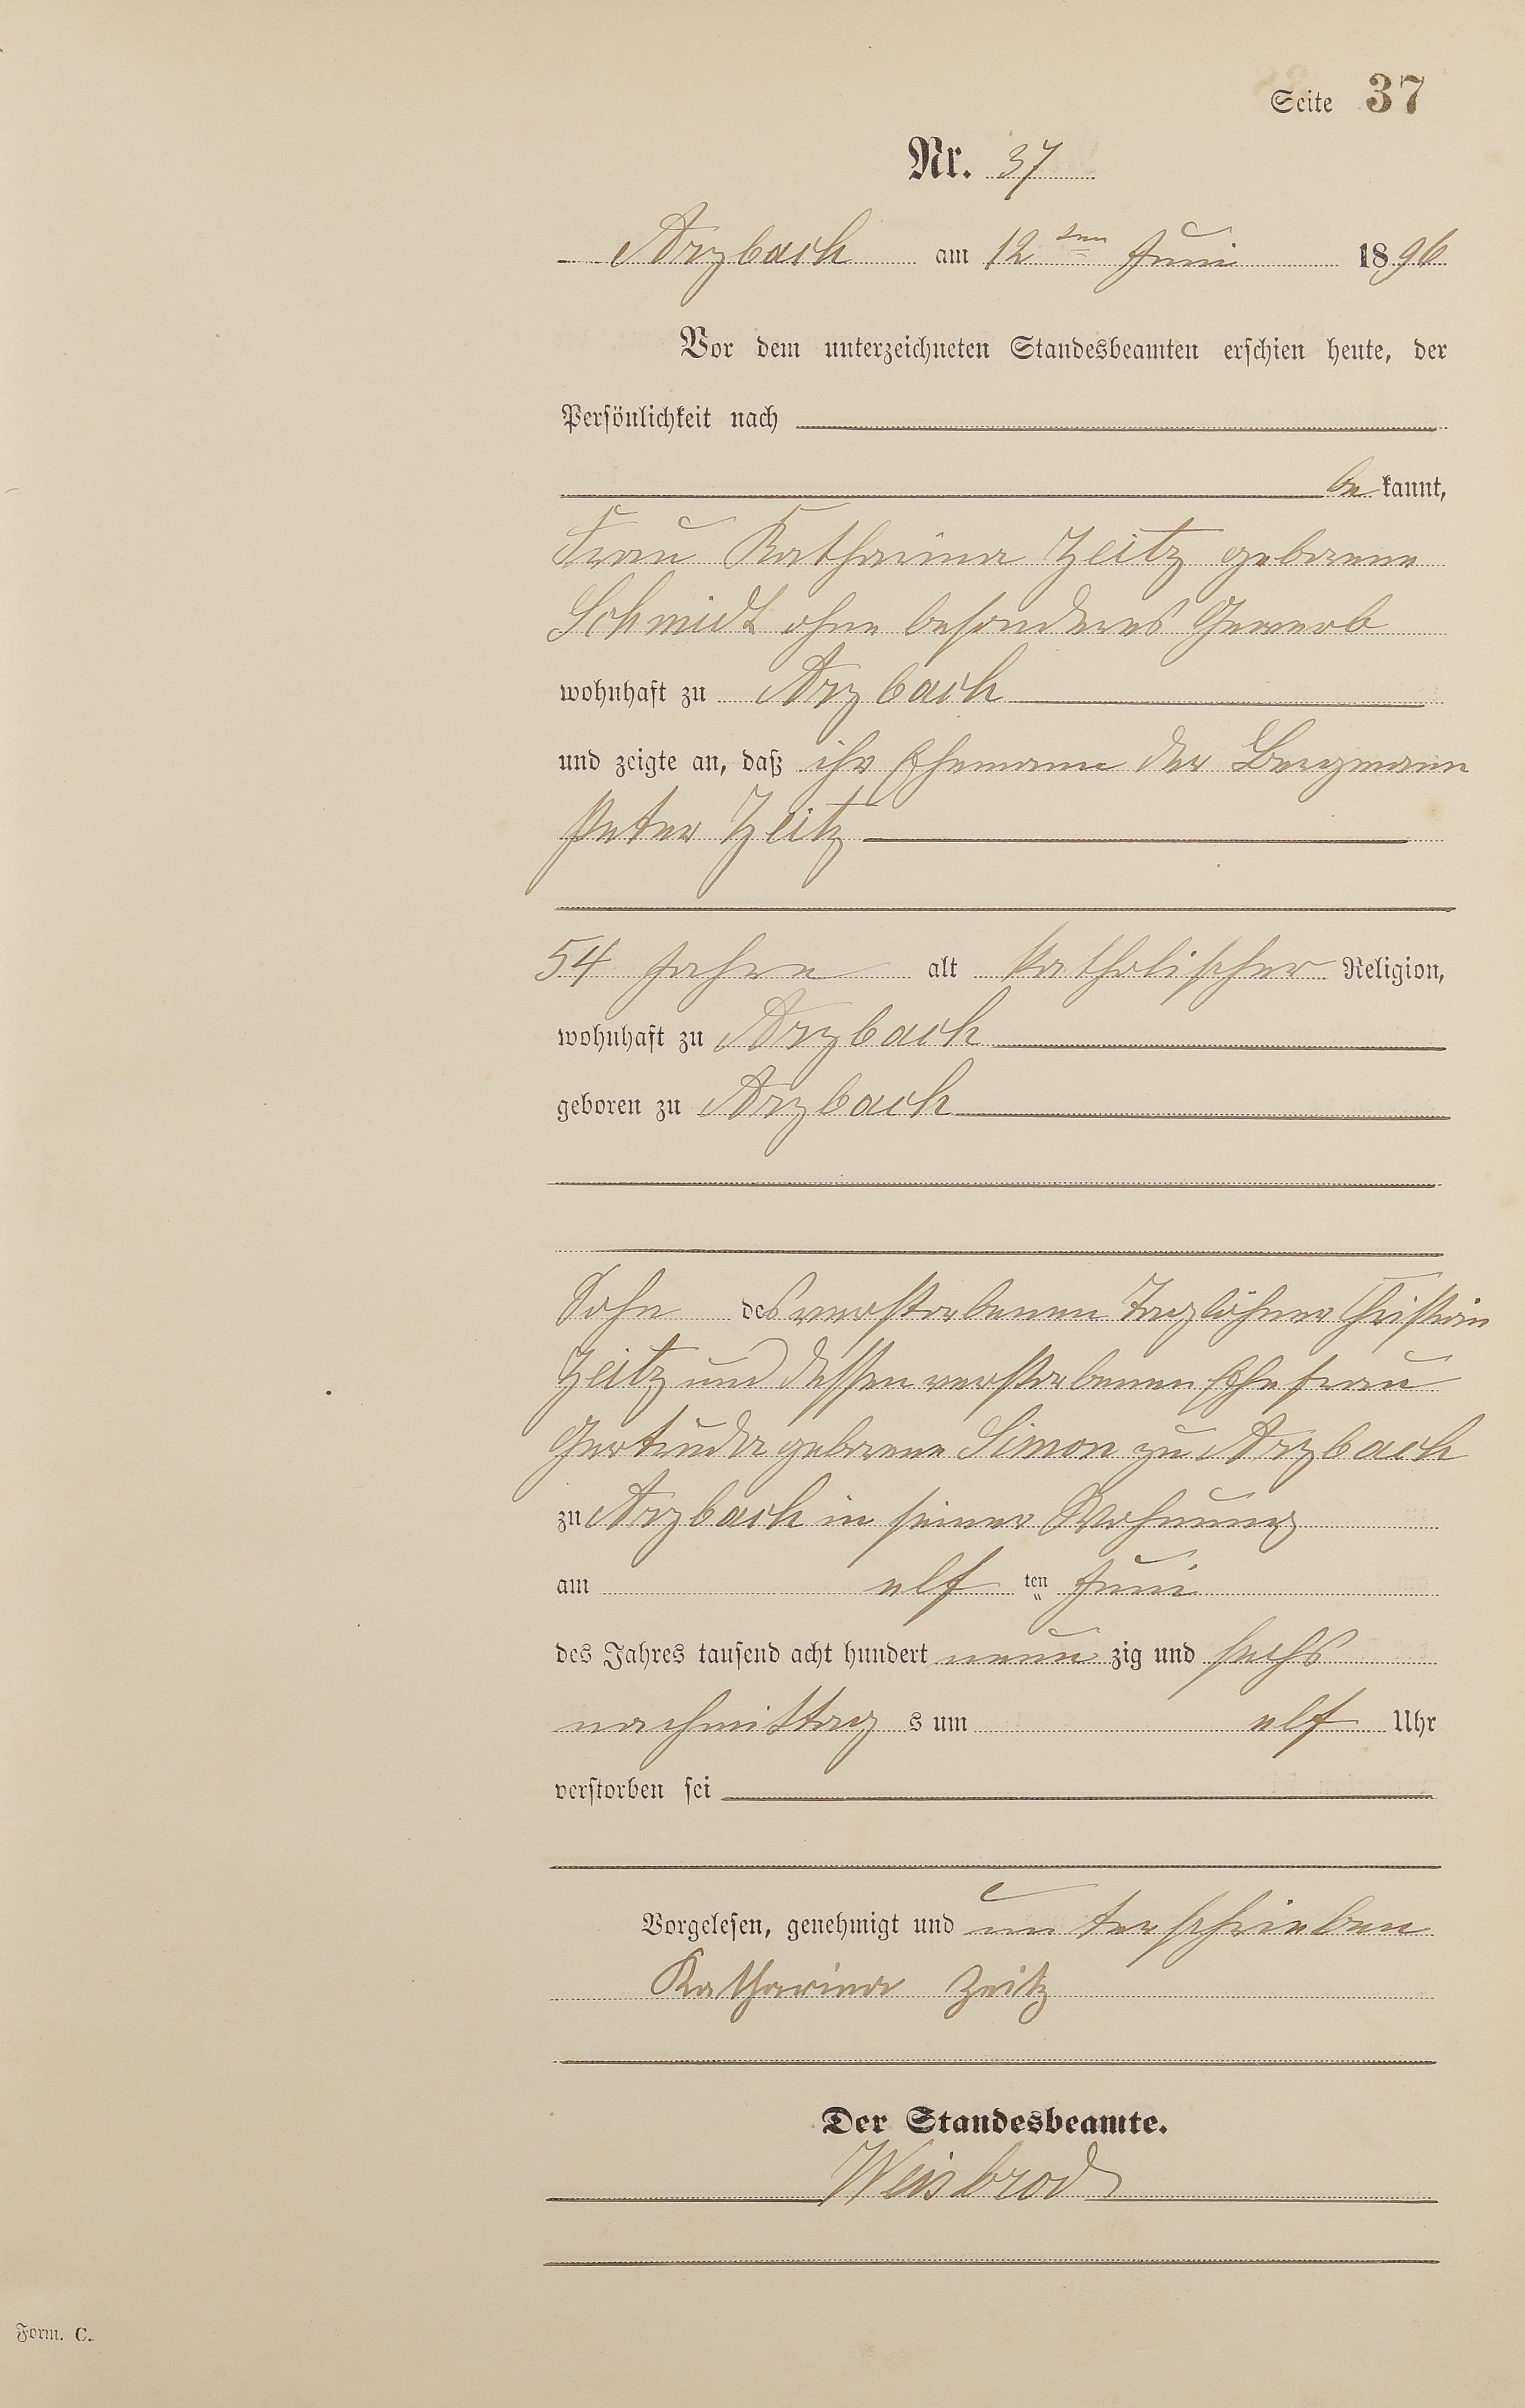 Seite 37
Nr. 37
Arzbach am 12ten Juni 1896
Vor dem unterzeichneten Standesbeamten erschien heute, der
Persönlichkeit nach
be kannt,
Frau Katharina Zeitz geborene
Schmidt ohne besonderes Gewerb
wohnhaft zu Arzbach
und zeigte an, daß ihr Ehemann der Bergmann
Peter Zeitz
54 Jahre alt katholischer Religion,
wohnhaft zu Arzbach
geboren zu Arzbach
Sohn des verstorbenen Taglöhner Christian
Zeitz und dessen verstorbenen Ehefrau
Gertruda geborene Simon zu Arzbach
zu Arzbach in seiner Wohnung
am elf ten Juni
des Jahres tausend acht hundert neun zig und sechs
nachmittag s um elf Uhr
verstorben sei
Vorgelesen, genehmigt und unterschrieben
Katharina Zeitz
Der Standesbeamte.
Weisbrod
Form. C.